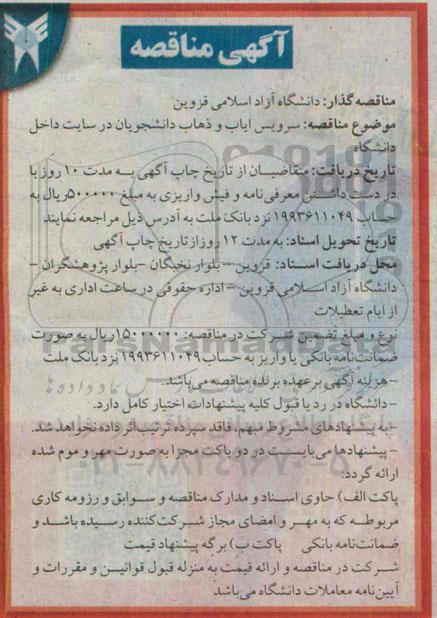 آگهی مناقصه
مناقصه گذار: دانشگاه آزاد اسلامی قزوین
موضوع مناقصه: سرویس ایاب و ذهاب دانشجویان در سایت داخل
دانشگاه
تاریخ دریافت: متقاضیان از تاریخ چاپ آگهی به مدت ۱۰ روز با
در دست داشتن معرفی نامه و فیش واریزی به مبلغ ۵۰۰۰۰۰ ریال به
حساب ۱۹۹۳۶۱۱۰۴۹ نزد بانک ملت به آدرس ذیل مراجعه نمایند
تاریخ تحویل اسناد: به مدت ۱۲ روز از تاریخ چاپ آگهی
محل دریافت اسناد: قزوین – بلوار نخبگان – بلوار پژوهشگران –
دانشگاه آزاد اسلامی قزوین – اداره حقوقی در ساعت اداری به غیر
از ایام تعطیلات
نوع و مبلغ تضمین شرکت در مناقصه: ۱۵۰۰۰۰۰۰۰ ریال به صورت
ضمانت نامه بانکی یا واریز به حساب ۱۹۹۳۶۱۱۰۴۹ نزد بانک ملت
– هزینه آگهی بر عهده برنده مناقصه می باشد.
– دانشگاه در رد یا قبول کلیه پیشنهادات اختیار کامل دارد.
– به پیشنهادهای مشروط مبهم، فاقد سپرده ترتیب اثر داده نخواهد شد.
– پیشنهادها می بایست در دو پاکت مجزا به صورت مهر و موم شده
ارائه گردد:
پاکت الف) حاوی اسناد و مدارک مناقصه و سوابق و رزومه کاری
مربوطه که به مهر و امضای مجاز شرکت کننده رسیده باشد و
ضمانت نامه بانکی پاکت ب) برگه پیشنهاد قیمت
شرکت در مناقصه و ارائه قیمت به منزله قبول قوانین و مقررات و
آیین نامه معاملات دانشگاه می باشد
ParsNamadData
۰۲۱-۸۸۳۴۹۶۷۰-۵